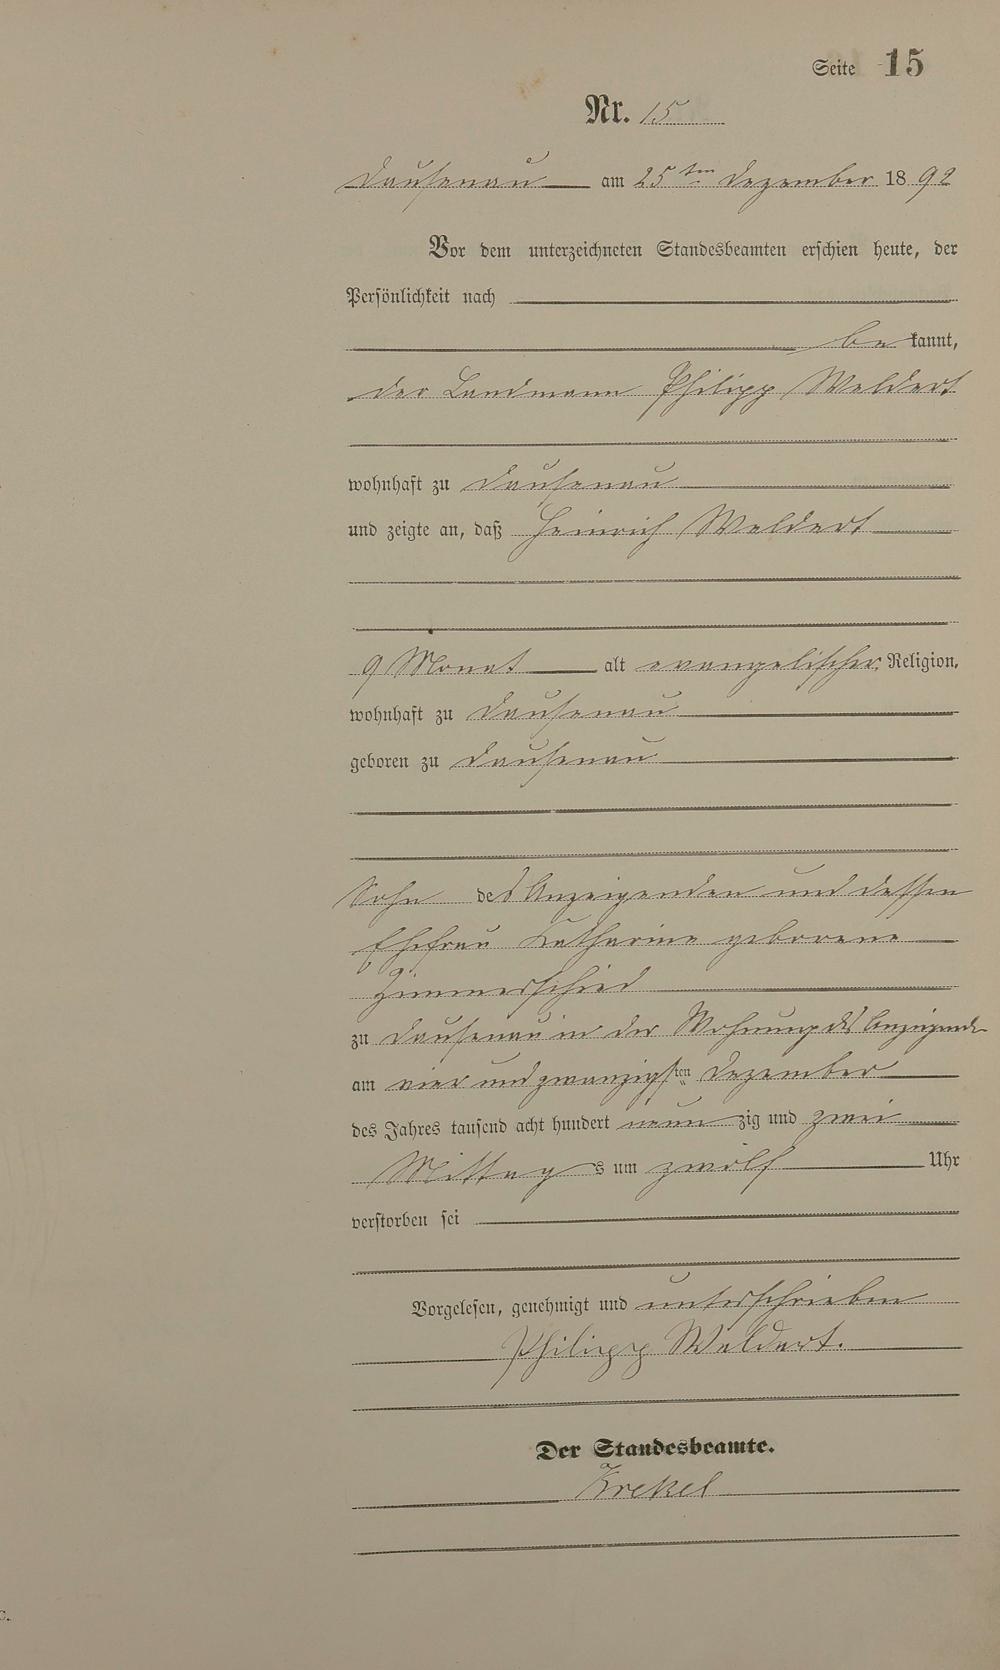 Seite 15
Nr. 15
Dausenau am 25ten Dezember 1892
Vor dem unterzeichneten Standesbeamten erschien heute, der
Persönlichkeit nach
be kannt,
der Landmann Philipp Weldert
wohnhaft zu Dausenau
und zeigte an, daß Heinrich Weldert
9 Monat alt evangelischer Religion,
wohnhaft zu Dausenau
geboren zu Dausenau
Sohn des Anzeigenden und dessen
Ehefrau Katharine geborene
Zimmerschied
zu Dausenau in der Wohnung des Anzeigenden
am vier und zwanzigsten Dezember
des Jahres tausend acht hundert neun zig und zwei
Mittags um zwölf Uhr
verstorben sei
Vorgelesen, genehmigt und unterschrieben
Philipp Weldert.
Der Standesbeamte.
Krekel
c.